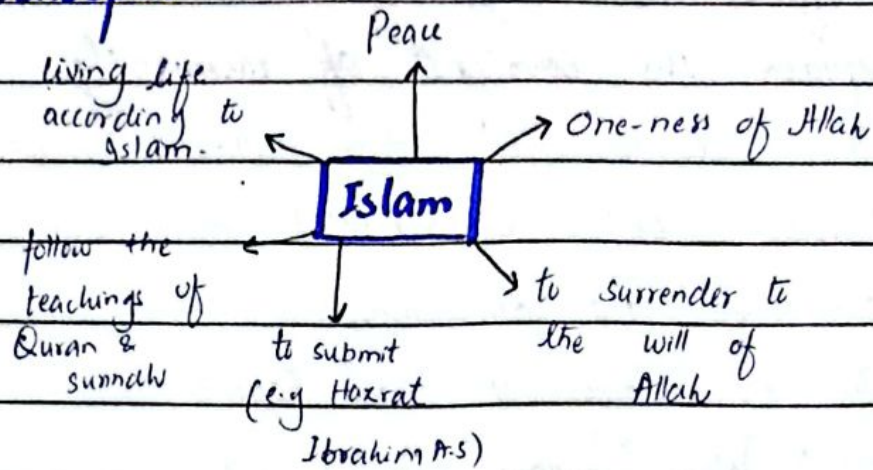 Peace
living life
according to
Islam.
One-ness of Allah
Islam
follow the
teachings of
Quran &
sunnah
to submit
(e.g Hazrat
Ibrahim A.S)
to surrender to
the will of
Allah